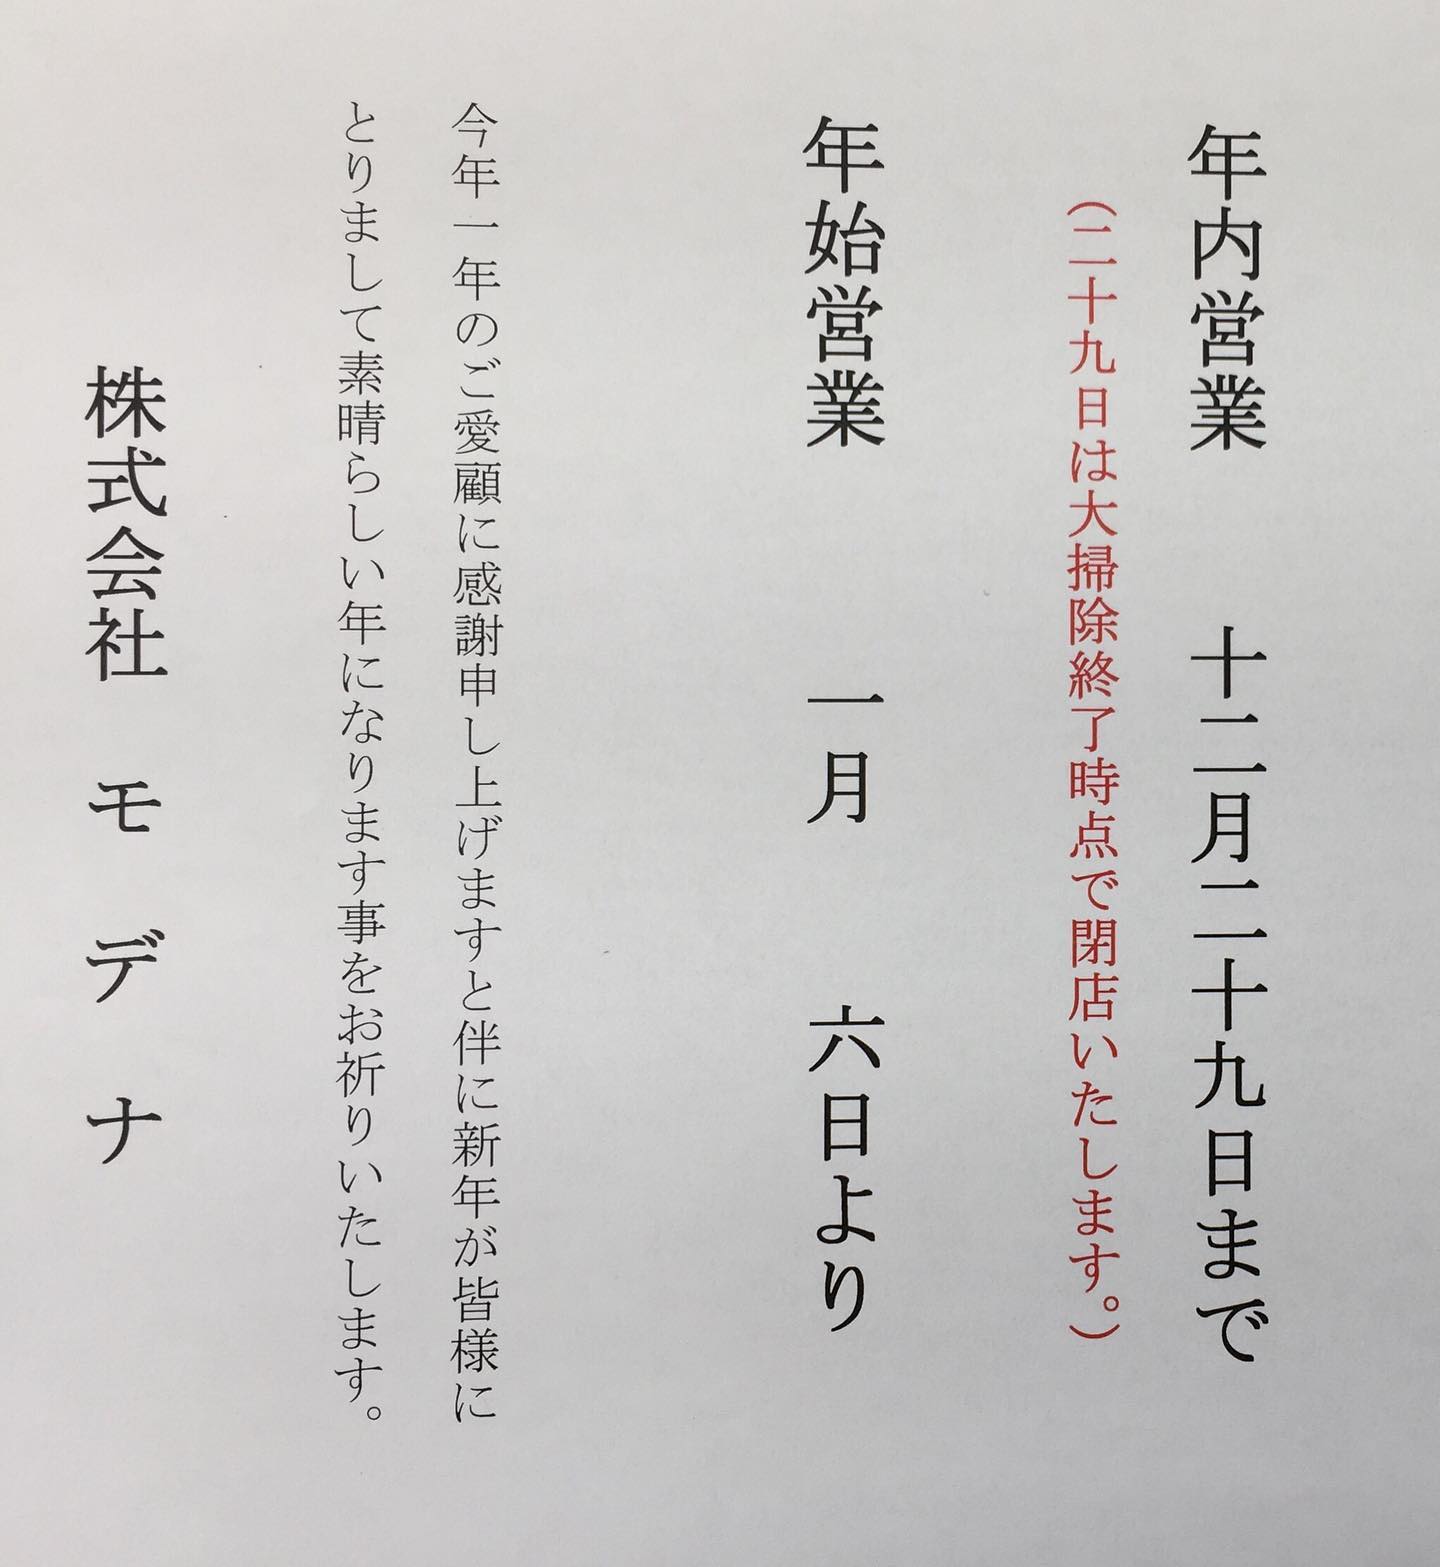 年内営業　十二月二十九日まで
（二十九日は大掃除終了時点で閉店いたします。）
年始営業　一月　六日より
今年一年のご愛顧に感謝申し上げますと伴に新年が皆様に
とりまして素晴らしい年になります事をお祈りいたします。
株式会社　モデナ